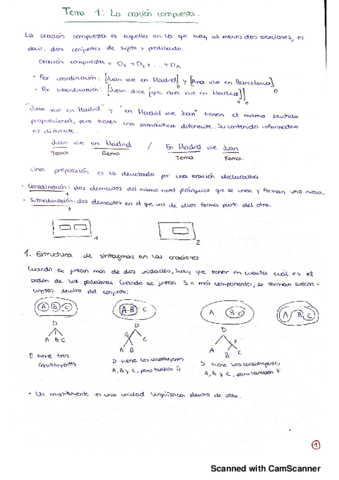 Tema 1: La oración compuesta.
La oración compuesta es aquella en la que hay al menos dos oraciones, es
decir, dos conjuntos de sujeto y predicado.
Oración compuesta = O1 + O2 + ... + On
· Por coordinación: [Juan vive en Madrid] y [Ana vive en Barcelona]
· Por subordinación: [Juan dice [que Ana vive en Madrid]]
"Juan vive en Madrid" y "en Madrid vive Juan" tienen el mismo sentido
proposicional, pero tienen una semántica diferente. Su contenido informativo
es diferente.
Juan vive en Madrid / En Madrid vive Juan
Tema Rema Tema Rema
Una proposición es lo denotado por una oración declarativa
· Coordinación: dos elementos del mismo nivel jerárquico que se unen y forman una nueva.
· Subordinación: dos elementos en el que uno de ellos forma parte del otro.
1 2
1. Estructura de sintagmas en las oraciones
Cuando se juntan más de dos unidades, hay que tener en cuenta cuál es el
orden de las palabras. Cuando se juntan 3 o más componentes, se forman
dentro del conjunto:
A B C A-B C A B C A B C
D D D
A B C G C A F
A B B C
D tiene tres D tiene los constituyentes D tiene los constituyentes
constituyentes A, B y C, pero también G A, B y C, pero también F
· Un constituyente es una unidad lingüística dentro de otra.
1
Scanned with CamScanner